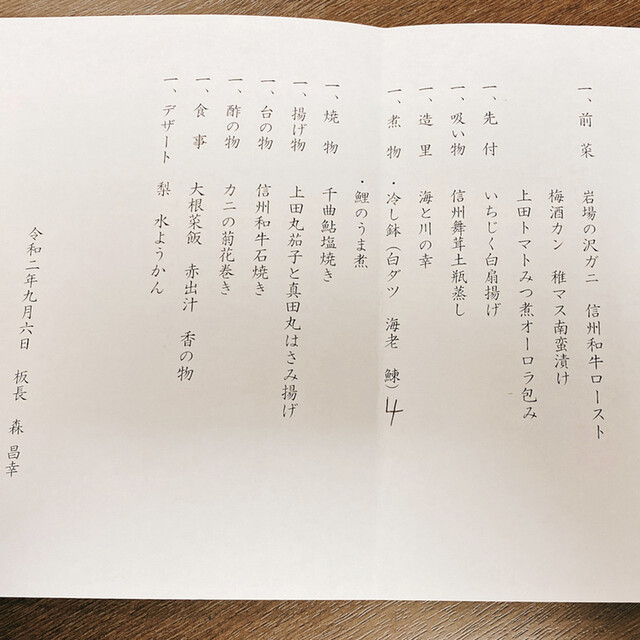 一、前菜 岩場の沢ガニ 信州和牛ロースト
梅酒カン 稚マス南蛮漬け
上田トマトみつ煮オーロラ包み
一、先付 いちじく白扇揚げ
一、吸い物 信州舞茸土瓶蒸し
一、造里 海と川の幸
一、煮物 ・冷し鉢(白ダツ 海老 鰊) 4
・鯉のうま煮
一、焼物 千曲鮎塩焼き
一、揚げ物 上田丸茄子と真田丸はさみ揚げ
一、台の物 信州和牛石焼き
一、酢の物 カニの菊花巻き
一、食事 大根菜飯 赤出汁 香の物
一、デザート 梨 水ようかん
令和二年九月六日 板長 森昌幸